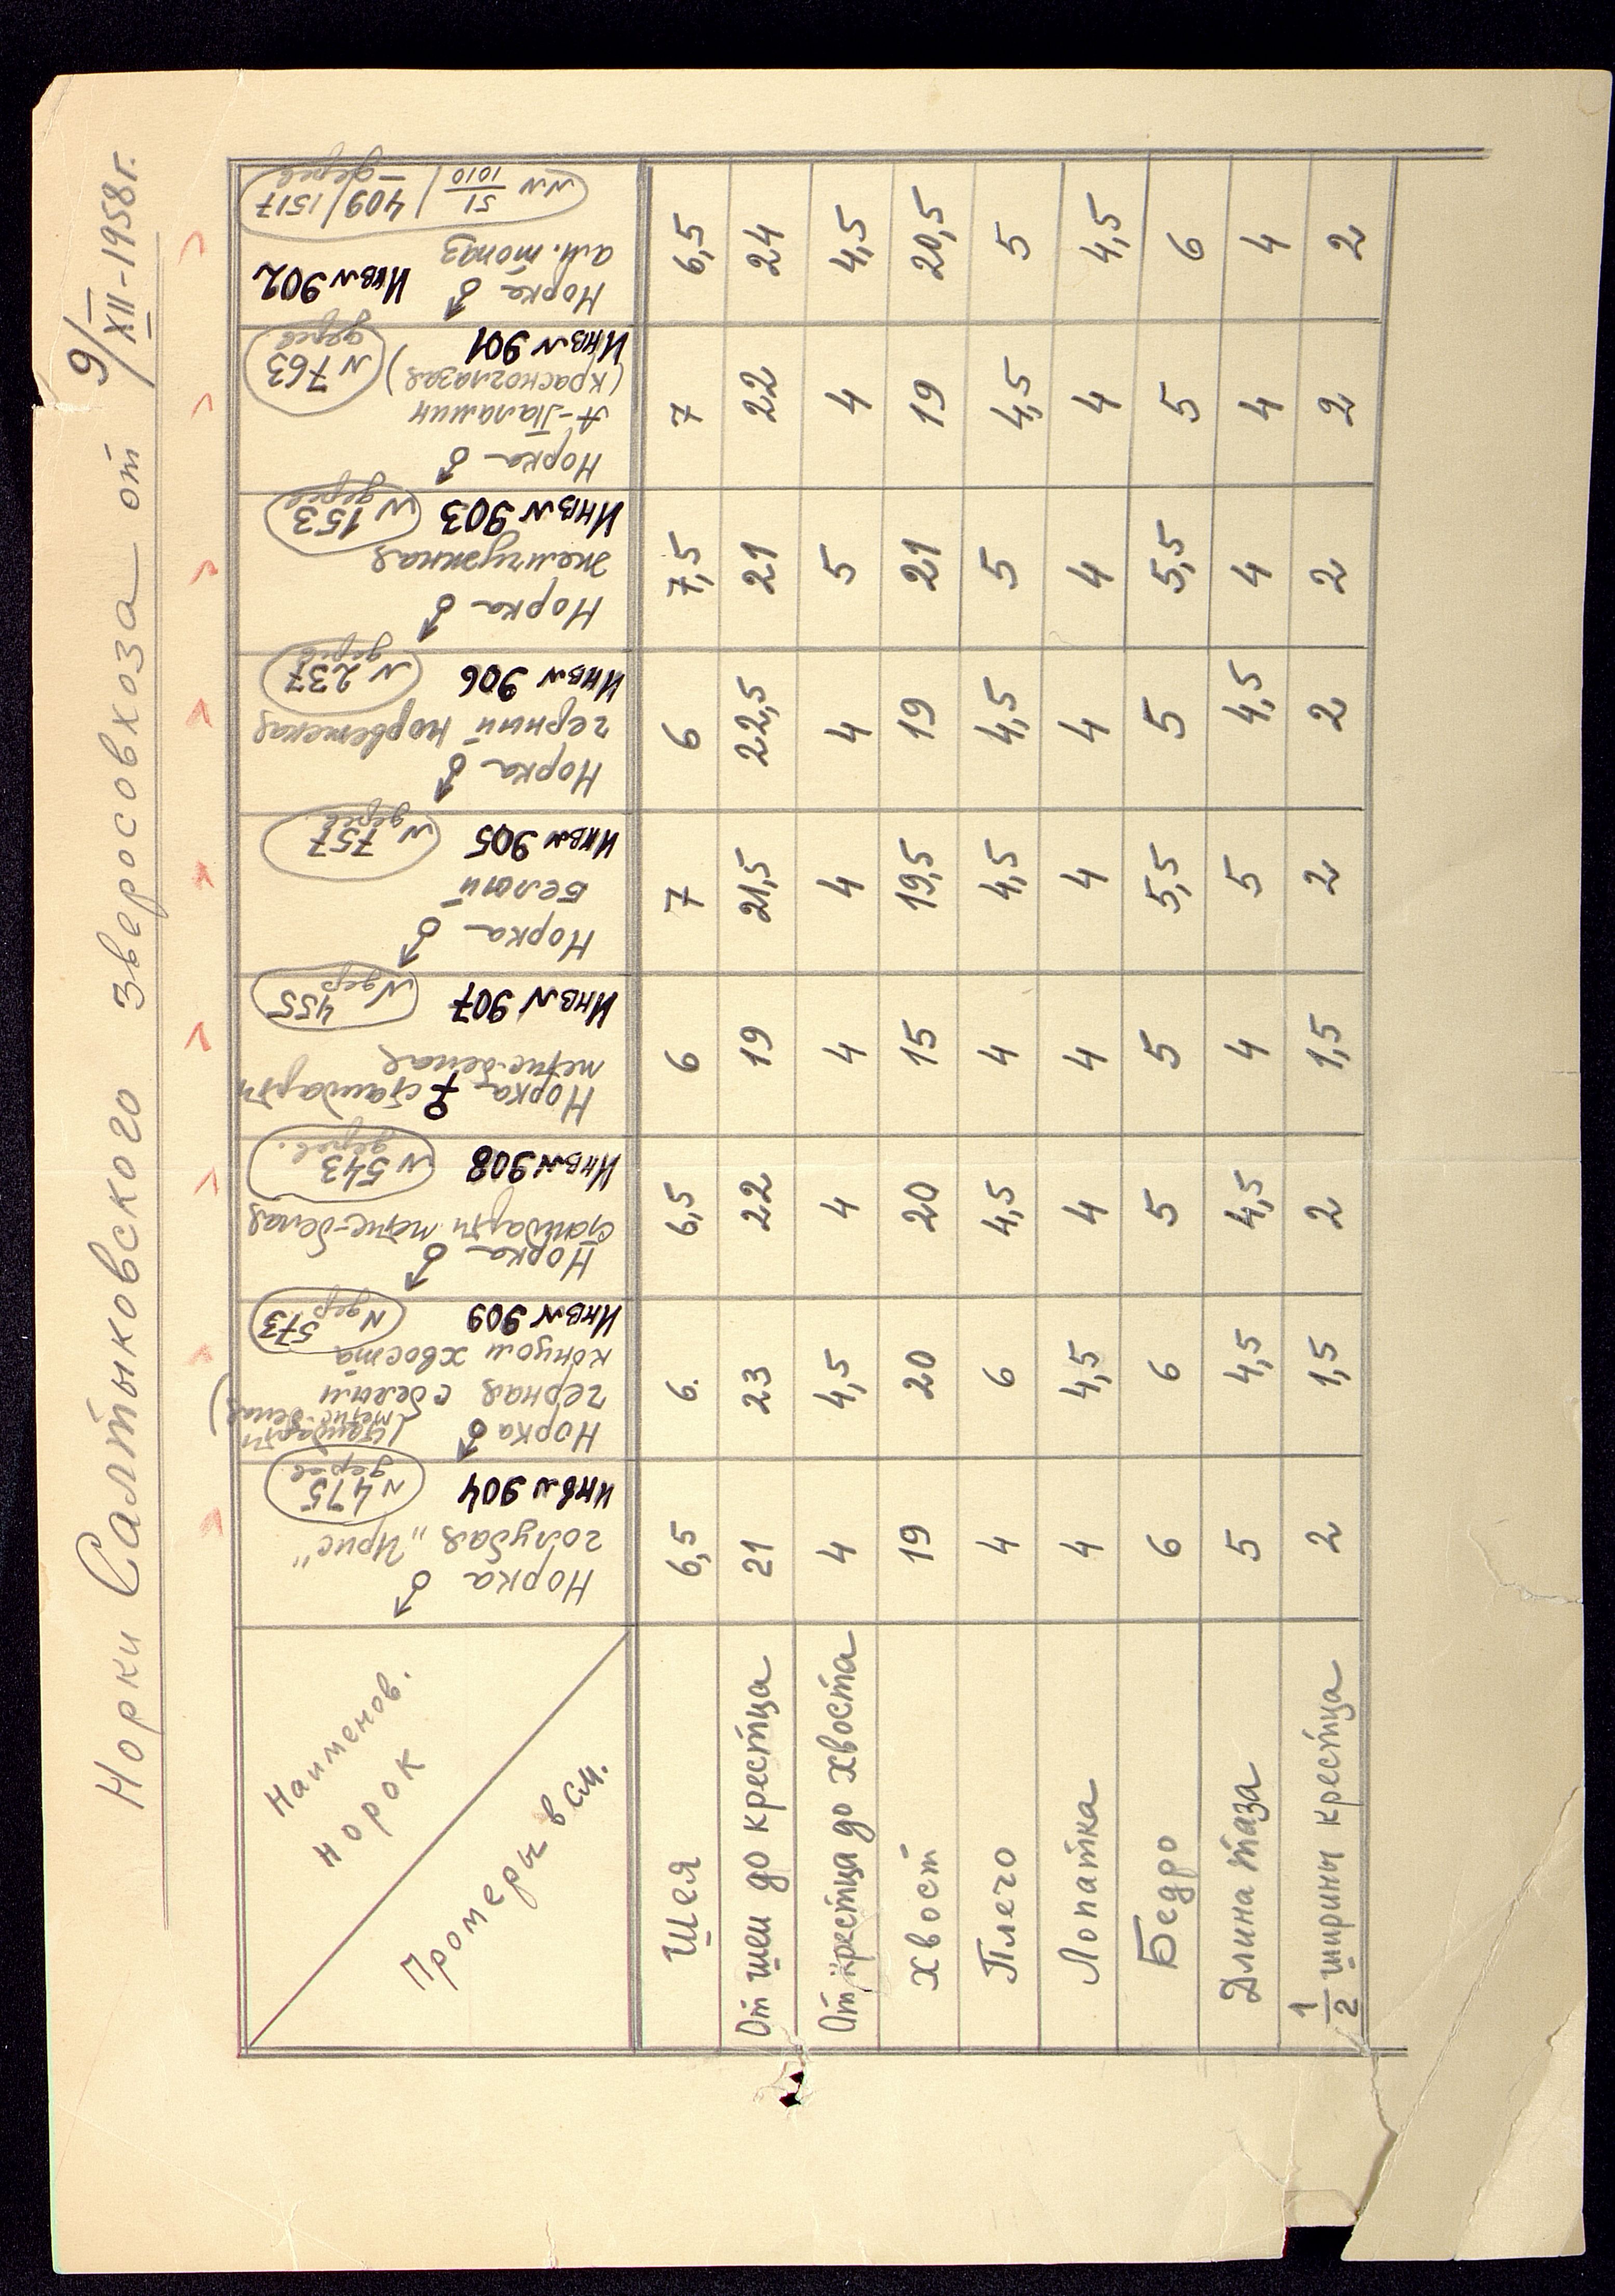 Норки Салтыковского зверосовхоза от 9/XII-1958г.
Наименов. норок
Промеры в см.
Норка ♂
голубая "Ирис"
Инв № 904
№ 475
дерев.
Норка ♂
черная с белым
концом хвоста
Инв № 909
N 573
дер
Норка ♂
стандартн метис-белая
Инв № 908
№ 543
дерев.
Норка ♀ стандартн
метис-белая
Инв № 907
455
N дер
Норка ♂
Белый
Инв № 905
№ 757
дерев.
Норка ♂
черный норвежская
Инв № 906
№ 237
дерев
Норка ♂
жемчужная
Инв № 903
№ 153
дерев
Норка ♂
А-Паламин
(красноглазая)
Инв № 901
№ 763
дерев
Норка ♂
ам. топаз
Инв № 902
№№ 51/1010 / 409/1517
дерев
Шея 6,5 6. 6,5 6 7 6 7,5 7 6,5
От шеи до крестца 21 23 22 19 21,5 22,5 21 22 24
От крестца до хвоста 4 4,5 4 4 4 4 5 4 4,5
Хвост 19 20 20 15 19,5 19 21 19 20,5
Плечо 4 6 4,5 4 4,5 4,5 5 4,5 5
Лопатка 4 4,5 4 4 4 4 4 4 4,5
Бедро 6 6 5 5 5,5 5 5,5 5 6
Длина таза 5 4,5 4,5 4 5 4,5 4 4 4
1/2 ширины крестца 2 1,5 2 1,5 2 2 2 2 2